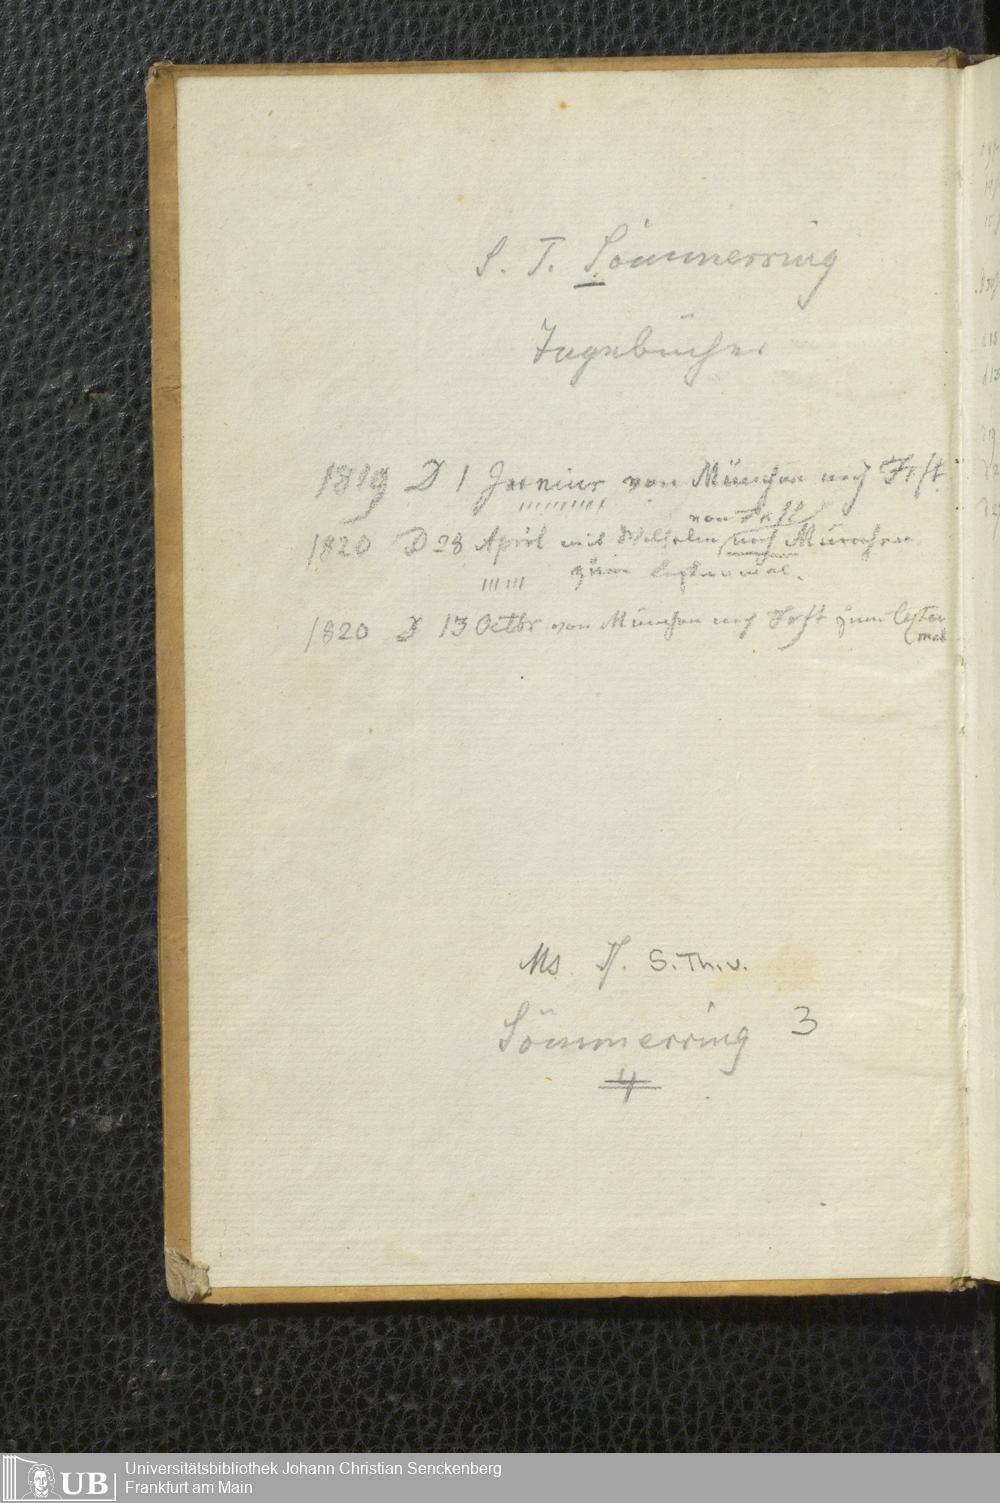 S. T. Sömmerring
Tagebücher
1819 D 1 Junius von München nach Frft
von Frft
1820 D 28 April mit Wilhelm nach München
zum letztenmal.
1820 D 13 Octbr von München nach Frft zum letzten
mal
Ms. Ff. S.Th.v.
Sömmerring 3
4
UB
Universitätsbibliothek Johann Christian Senckenberg
Frankfurt am Main